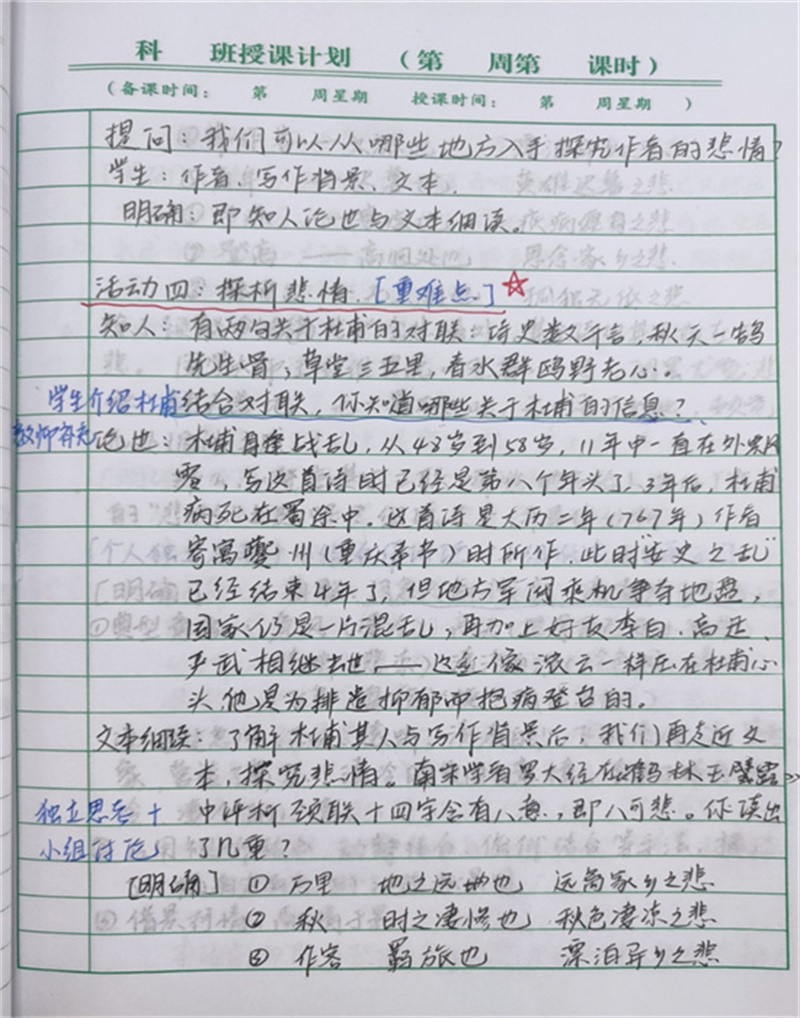 科 班授课计划 （第 周第 课时）
（备课时间： 第 周星期 授课时间： 第 周星期 ）
提问：我们可以从哪些地方入手探究作者的悲情？
学生：作者、写作背景、文本.
明确：即知人论世与文本细读。
活动四：探析悲情.[重难点]☆
知人：有两句关于杜甫的对联：诗史数千言，秋天一鹄
先生骨；草堂三五里，春水群鸥野老心。
学生介绍杜甫 结合对联，你知道哪些关于杜甫的信息？
教师补充 论世：杜甫身逢战乱，从48岁到58岁，11年中一直在外飘
零，写这首诗时已经是第八个年头了，3年后，杜甫
病死在蜀途中。这首诗是大历二年(767年)作者
寄寓夔州(重庆奉节)时所作.此时"安史之乱"
已经结束4年了，但地方军阀乘机争夺地盘，
国家仍是一片混乱，再加上好友李白、高适、
严武相继去世——这些像浓云一样压在杜甫心
头，他是为排遣抑郁而抱病登台的。
文本细读：了解杜甫其人与写作背景后，我们再走近文
本，探究悲情。南宋学者罗大经在《鹤林玉露》
独立思考+ 中评析颈联十四字含有八意，即八可悲。你读出
小组讨论 了几重？
[明确] ① 万里 地之远也 远离家乡之悲
② 秋 时之凄惨也 秋色凄凉之悲
③ 作客 羁旅也 漂泊异乡之悲